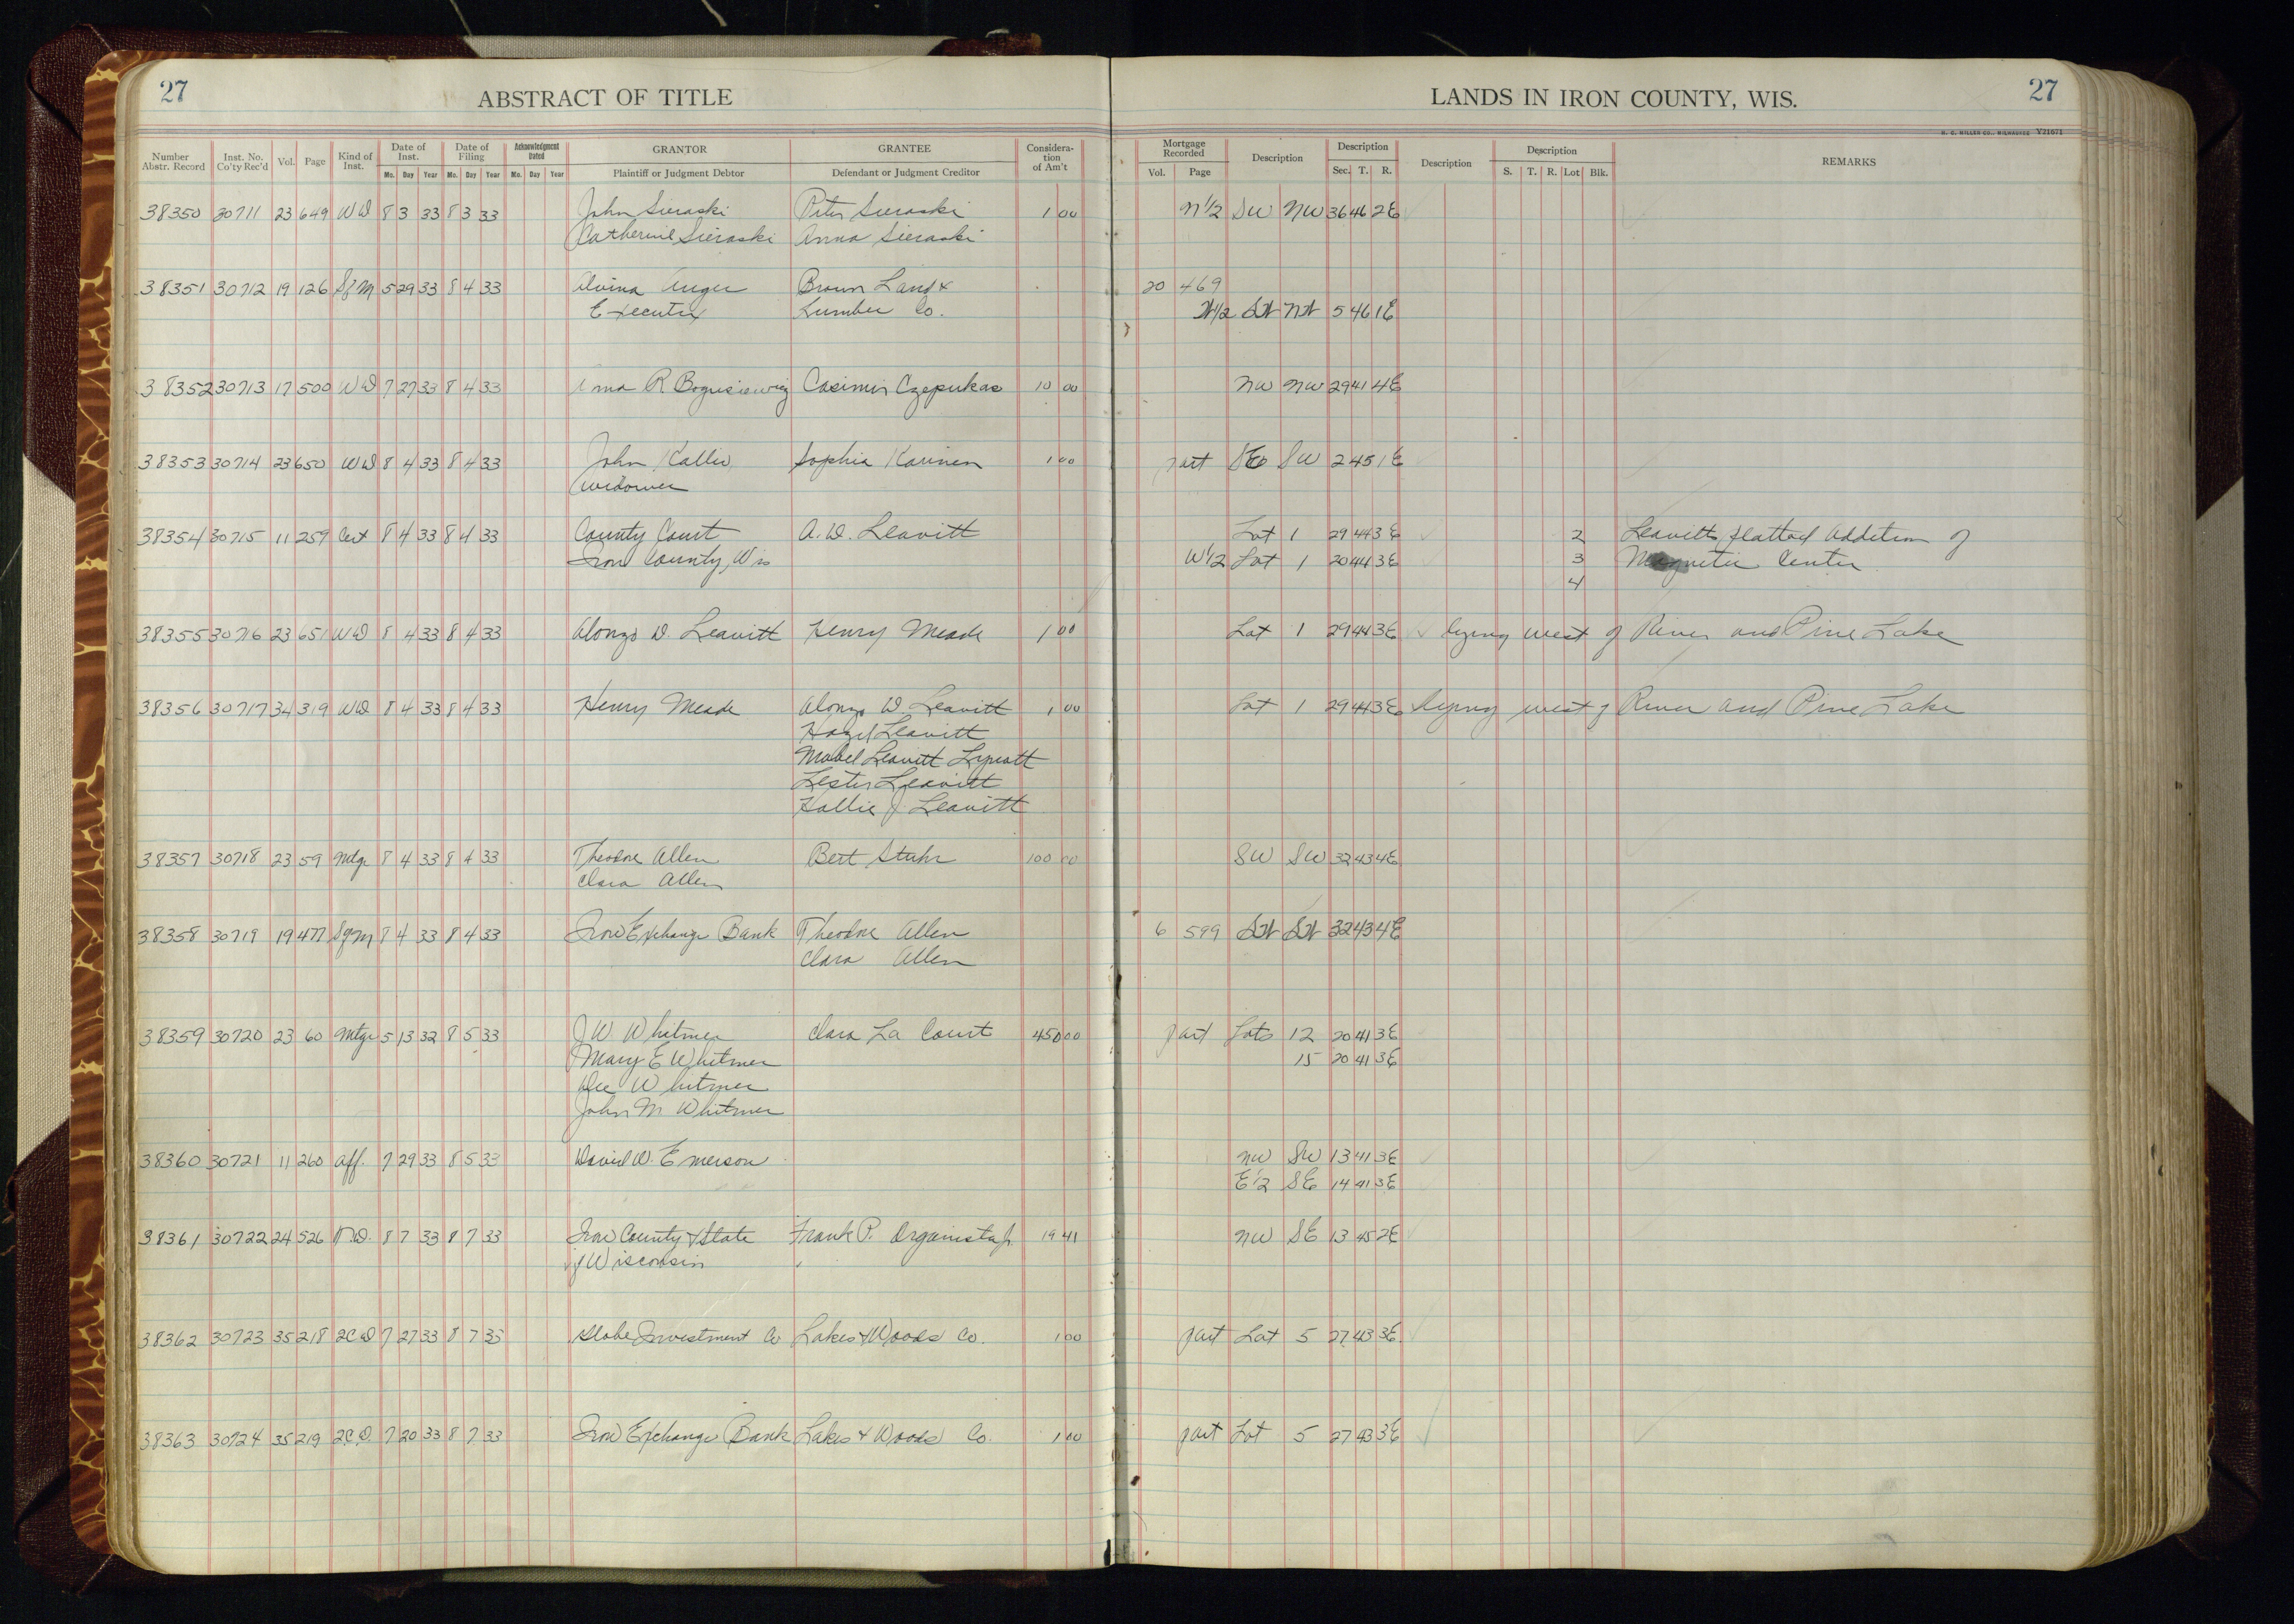 27 ABSTRACT OF TITLE LANDS IN IRON COUNTY, WIS. 27
H. C. MILLER CO., MILWAUKEE Y21671
Number Abstr. Record Inst. No. Co'ty Rec'd Vol. Page Kind of Inst. Date of Inst. Mo. Day Year Date of Filing Mo. Day Year Acknowledgment Dated Mo. Day Year GRANTOR Plaintiff or Judgment Debtor GRANTEE Defendant or Judgment Creditor Considera-tion of Am't Mortgage Recorded Vol. Page Description Description Sec. T. R. Description Description S. T. R. Lot Blk. REMARKS
38350 30711 23 649 WD 8 3 33 8 3 33 John Sieraski Peter Sieraski 1 00 N1/2 SW NW 36 46 2E
Catherine Sieraski Anna Sieraski
38351 30712 19 126 SfM 5 29 33 8 4 33 Alvina Unger Brown Land & 20 469
Executrix Lumber Co. W1/2 SW NW 5 46 1E
38352 30713 17 500 WD 7 27 33 8 4 33 R Bogusiewicz Casimir Czepukas 10 00 NW NW 29 41 4E
38353 30714 23 650 WD 8 4 33 8 4 33 John Kallio Sophia Karinen 1 00 part SE SW 2 45 1E
Widower
38354 30715 11 259 Cert 8 4 33 8 4 33 County Court A. D. Leavitt Lot 1 29 44 3E 2 Leavitts platted Addition of
Iron County, Wis W1/2 Lot 1 20 44 3E 3 Magnetic Center
4
38355 30716 23 651 WD 8 4 33 8 4 33 Alonzo D. Leavitt Henry Meade 1 00 Lot 1 29 44 3E lying west of River and Pine Lake
38356 30717 34 319 WD 8 4 33 8 4 33 Henry Meade Alonzo D. Leavitt 1 00 Lot 1 29 44 3E lying west of River and Pine Lake
Hazel Leavitt
Mabel Leavitt
Lester Leavitt
Hallie J. Leavitt
38357 30718 23 59 Mtge 8 4 33 8 4 33 Theodore Allen Bert Stuhr 100 00 SW SW 32 43 4E
Clara Allen
38358 30719 19 477 SfM 8 4 33 8 4 33 Iron Exchange Bank Theodore Allen 6 599 SW SW 32 43 4E
Clara Allen
38359 30720 23 60 Mtge 5 13 32 8 5 33 J W Whitmer Clara La Court 450 00 part Lots 12 20 41 3E
Mary E Whitmer 15 20 41 3E
Whitmer
John M Whitmer
38360 30721 11 260 Aff. 7 29 33 8 5 33 David W. Emerson NW SW 13 41 3E
E1/2 SE 14 41 3E
38361 30722 24 526 8 7 33 8 7 33 Iron County & State Frank P. Organista Jr. 19 41 NW SE 13 45 2E
of Wisconsin
38362 30723 35 218 2CD 7 27 33 8 7 33 Globe Investment Co Lakes & Woods Co. 1 00 part Lot 5 27 43 3E
38363 30724 35 219 2C.D. 7 20 33 8 7 33 Iron Exchange Bank Lakes & Woods Co. 1 00 part Lot 5 27 43 3E